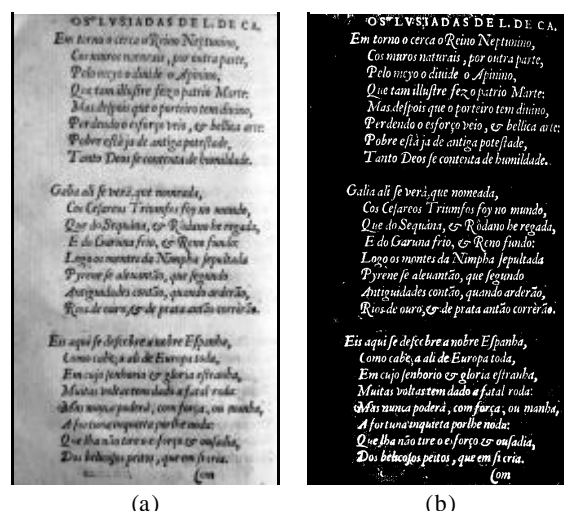 OS LVSIADAS DE L. DE CA.
Em torno o cerca o Reino Neptunino,
Cos muros naturais, por outra parte,
Pelo meyo o diuide o Apinino,
Que tam illuſtre fez o patrio Marte:
Mas deſpois que o porteiro tem diuino,
Perdendo o esforço veio, & bellica arte:
Pobre eſtà ja de antiga poteſtade,
Tanto Deos ſe contenta de humildade.
Galia ali ſe verá, que nomeada,
Cos Ceſareos Triumfos foy no mundo,
Que do Sequána, & Ródano he regada,
E do Garuna frio, & Reno fundo:
Logo os montes da Nimpha ſepultada
Pyrene ſe aleuantão, que ſegundo
Antiguidades contão, quando arderão,
Rios de ouro, & de prata antão corrèrão.
Eis aqui ſe deſcobre a nobre Eſpanha,
Como cabèça ali de Europa toda,
Em cujo ſenhorio & gloria eſtranha,
Muitas voltas tem dado a fatal roda:
Mas nunca poderá, com força, ou manha,
A fortuna inquieta por lhe noda:
Que lha não tire o esforço & ouſadia,
Dos belicoſos peitos, que em ſi cria.
Com
(a)
OS LVSIADAS DE L. DE CA.
Em torno o cerca o Reino Neptunino,
Cos muros naturais, por outra parte,
Pelo meyo o diuide o Apinino,
Que tam illuſtre fez o patrio Marte:
Mas deſpois que o porteiro tem diuino,
Perdendo o esforço veio, & bellica arte:
Pobre eſtà ja de antiga poteſtade,
Tanto Deos ſe contenta de humildade.
Galia ali ſe verá, que nomeada,
Cos Ceſareos Triumfos foy no mundo,
Que do Sequána, & Ródano he regada,
E do Garuna frio, & Reno fundo:
Logo os montes da Nimpha ſepultada
Pyrene ſe aleuantão, que ſegundo
Antiguidades contão, quando arderão,
Rios de ouro, & de prata antão corrèrão.
Eis aqui ſe deſcobre a nobre Eſpanha,
Como cabèça ali de Europa toda,
Em cujo ſenhorio & gloria eſtranha,
Muitas voltas tem dado a fatal roda:
Mas nunca poderá, com força, ou manha,
A fortuna inquieta por lhe noda:
Que lha não tire o esforço & ouſadia,
Dos belicoſos peitos, que em ſi cria.
Com
(b)